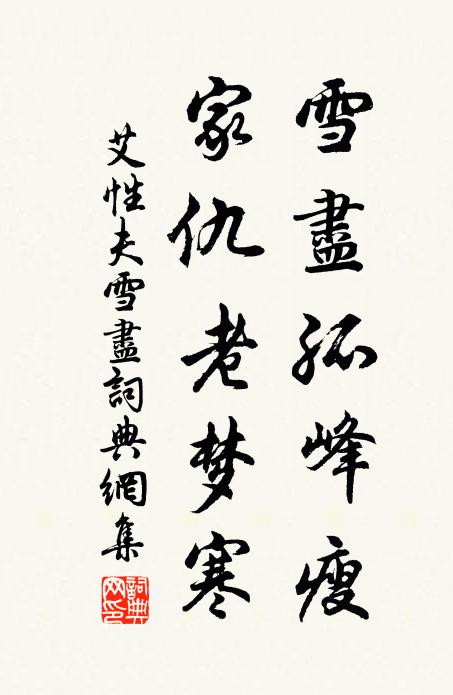 雪盡孤峰瘦
家仇老梦寒
艾性夫雪盡詞典網集
詞典網印